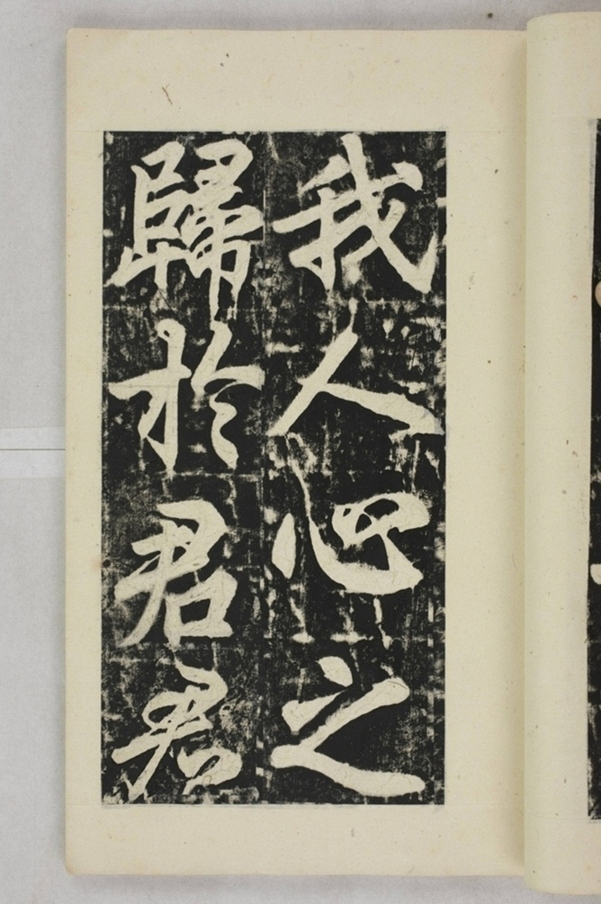 我人心之
歸於君君